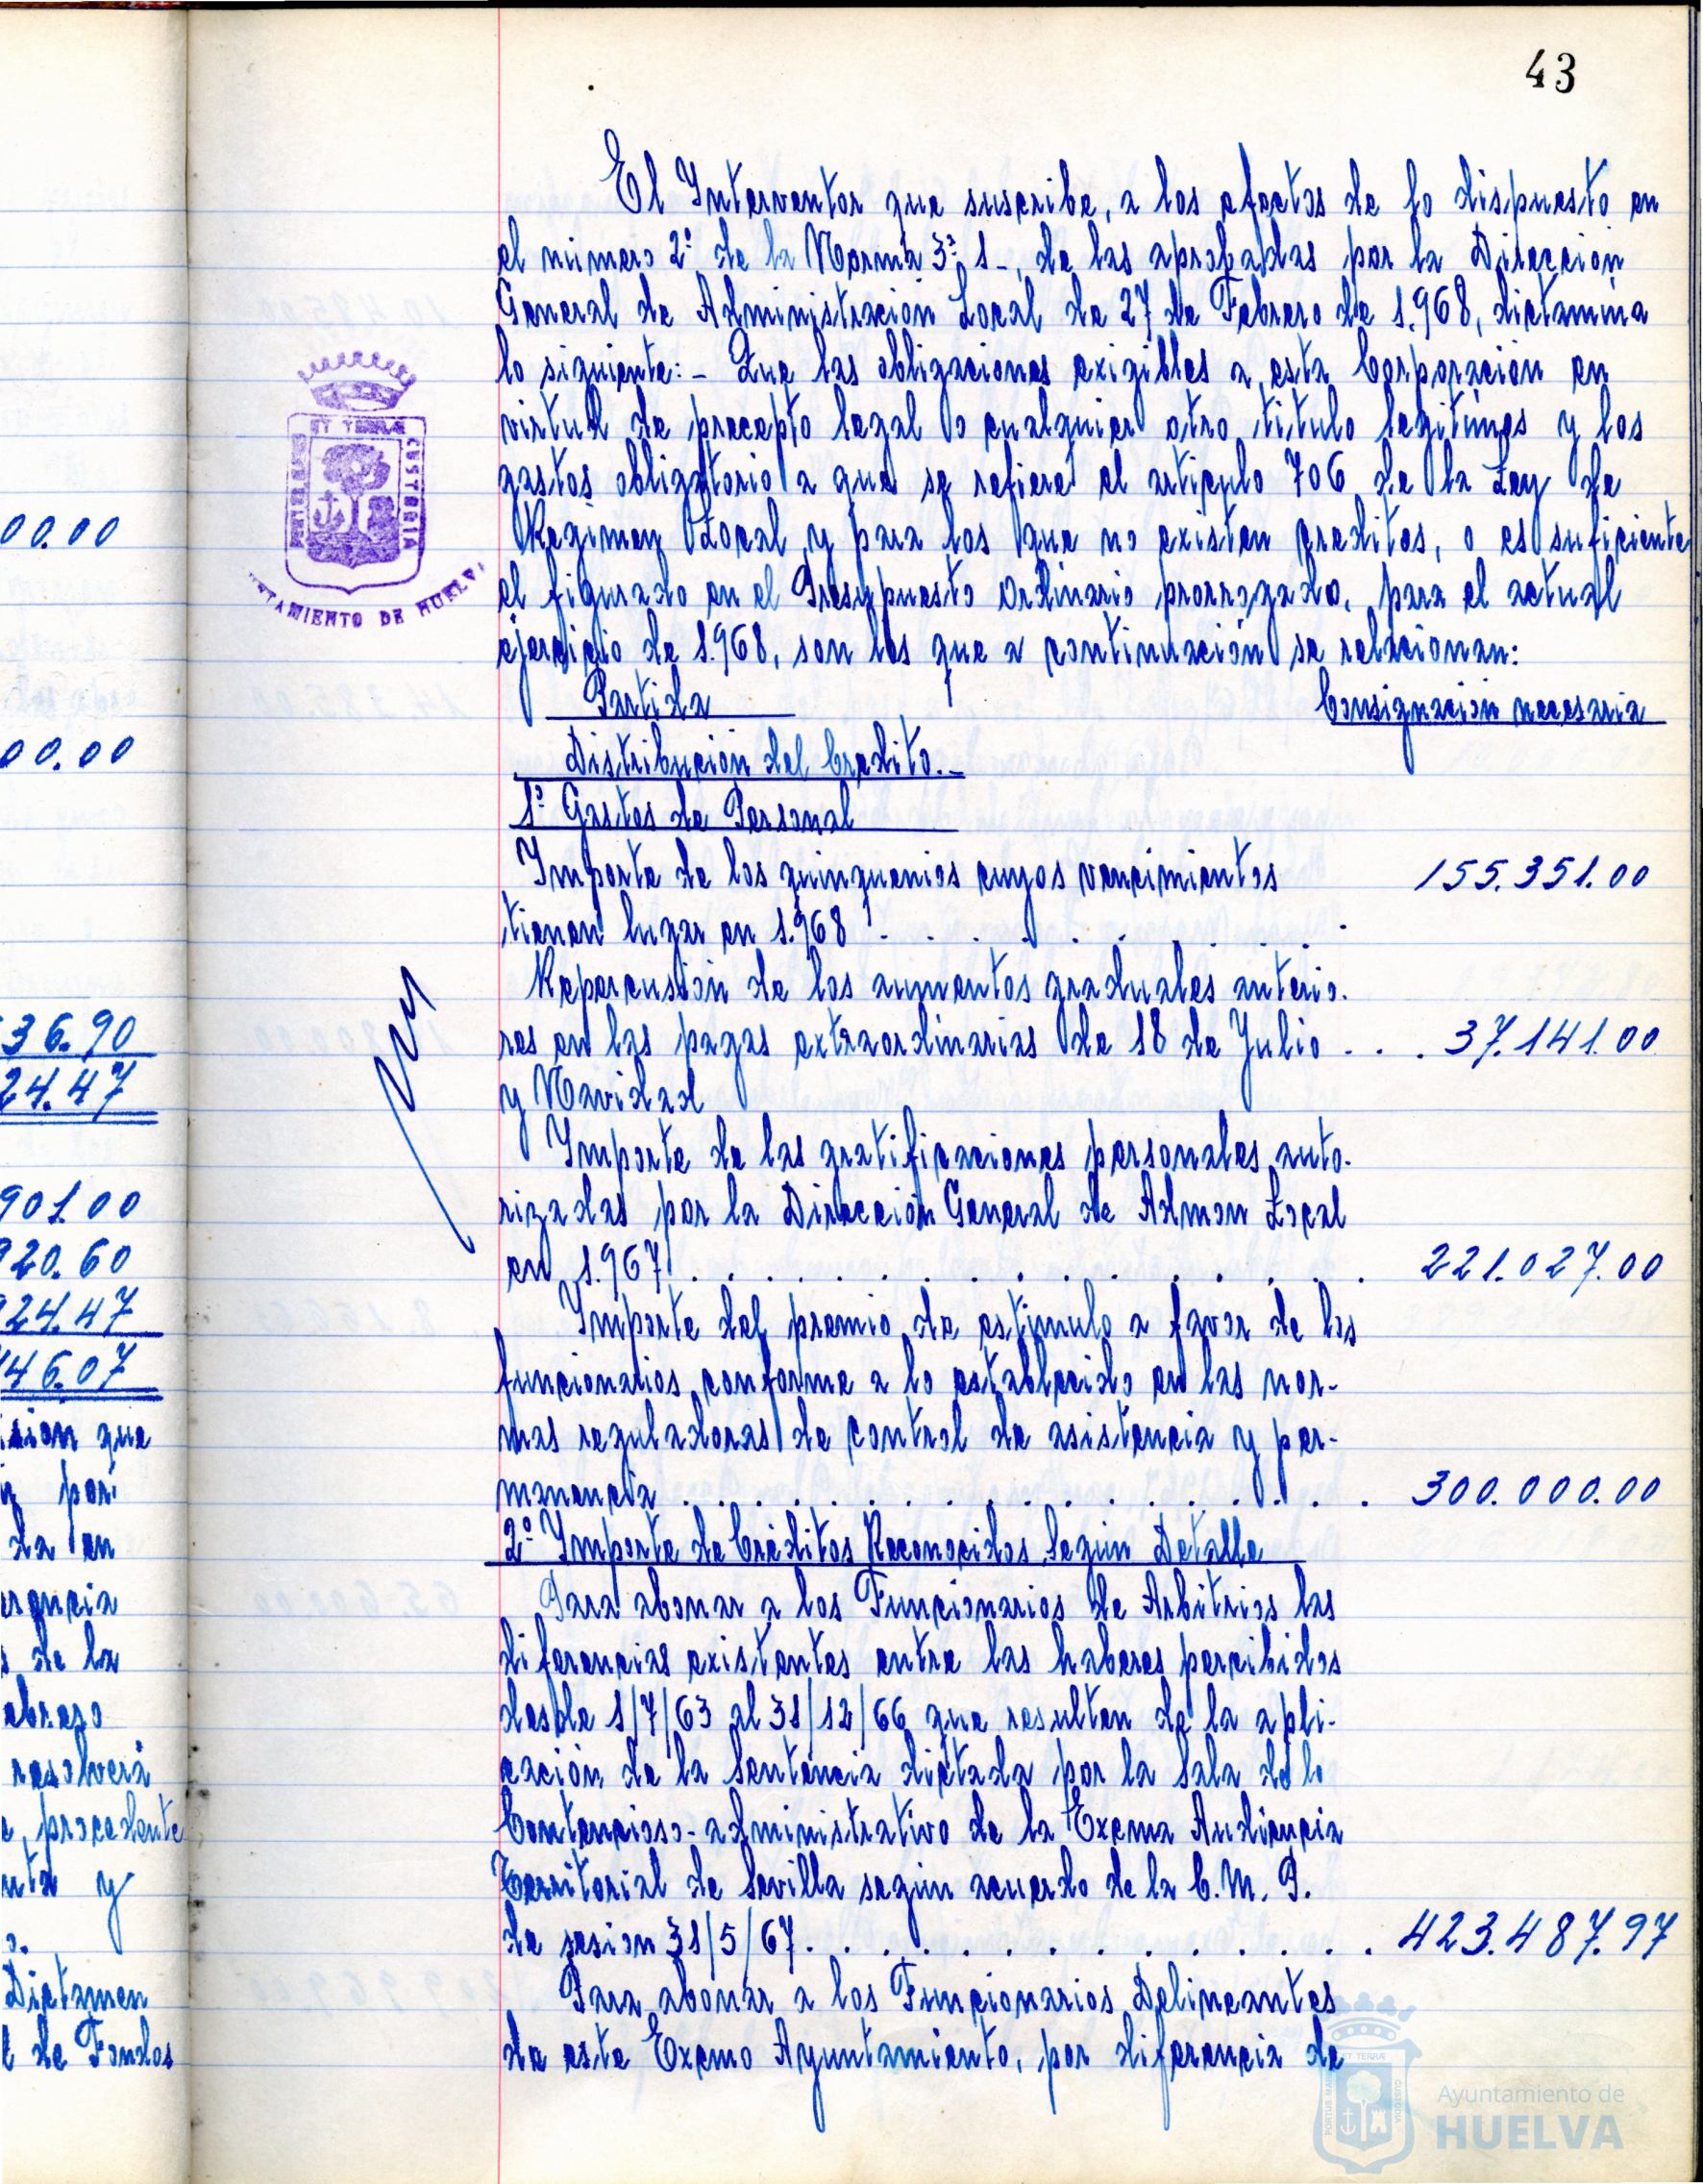 43
El Interventor que suscribe, a los efectos de lo dispuesto en
el número 2º de la Norma 3ª 1-, de las aprobadas por la Dirección
General de Administración Local de 27 de Febrero de 1.968, dictamina
lo siguiente:- Que las obligaciones exigibles a esta Corporación en
virtud de precepto legal o cualquier otro titulo legitimos y los
gastos obligatorio a que se refiere el articulo 706 de la Ley de
Regimen Local y para los que no existen creditos, o es suficiente
el figurado en el Presupuesto Ordinario prorrogado, para el actual
ejercicio de 1.968, son los que a continuación se relacionan:
Partida Consignación necesaria
Distribución del Credito.-
1º Gastos de Personal
Importe de los quinquenios cuyos vencimientos 155.351.00
tienen lugar en 1.968 . . . . . . . . .
Repercusión de los aumentos graduales anterio-
res en las pagas extraordinarias de 18 de Julio . . . 37.141.00
y Navidad
Importe de las gratificaciones personales auto-
rizadas por la Dirección General de Admon Local
en 1.967 . . . . . . . . . . . . . . . 221.027.00
Importe del premio de estimulo a favor de los
funcionarios conforme a lo establecido en las nor-
mas reguladoras de control de asistencia y per-
manencia . . . . . . . . . . . . . . . . 300.000.00
2º Importe de Créditos Reconocidos Según Detalle
Para abonar a los Funcionarios de Arbitrios las
diferencias existentes entre las haberes percibidos
desde 1/7/63 al 31/12/66 que resulten de la apli-
cación de la Sentencia dictada por la Sala de lo
Contencioso-administrativo de la Excma Audiencia
Territorial de Sevilla según acuerdo de la C. M. P.
de sesion 31/5/67 . . . . . . . . . . . . 423.487.97
Para abonar a los Funcionarios Delineantes
de este Excmo Ayuntamiento, por diferencia de
PORTUS MARIS
ET TERRÆ
CUSTODIA
AYUNTAMIENTO DE HUELVA
00.00
00.00
36.90
24.47
901.00
920.60
924.47
46.07
sion que
por
da en
de la
ebrero
resolverá
procedente
y
Dictamen
de Fondos
Ayuntamiento de
HUELVA